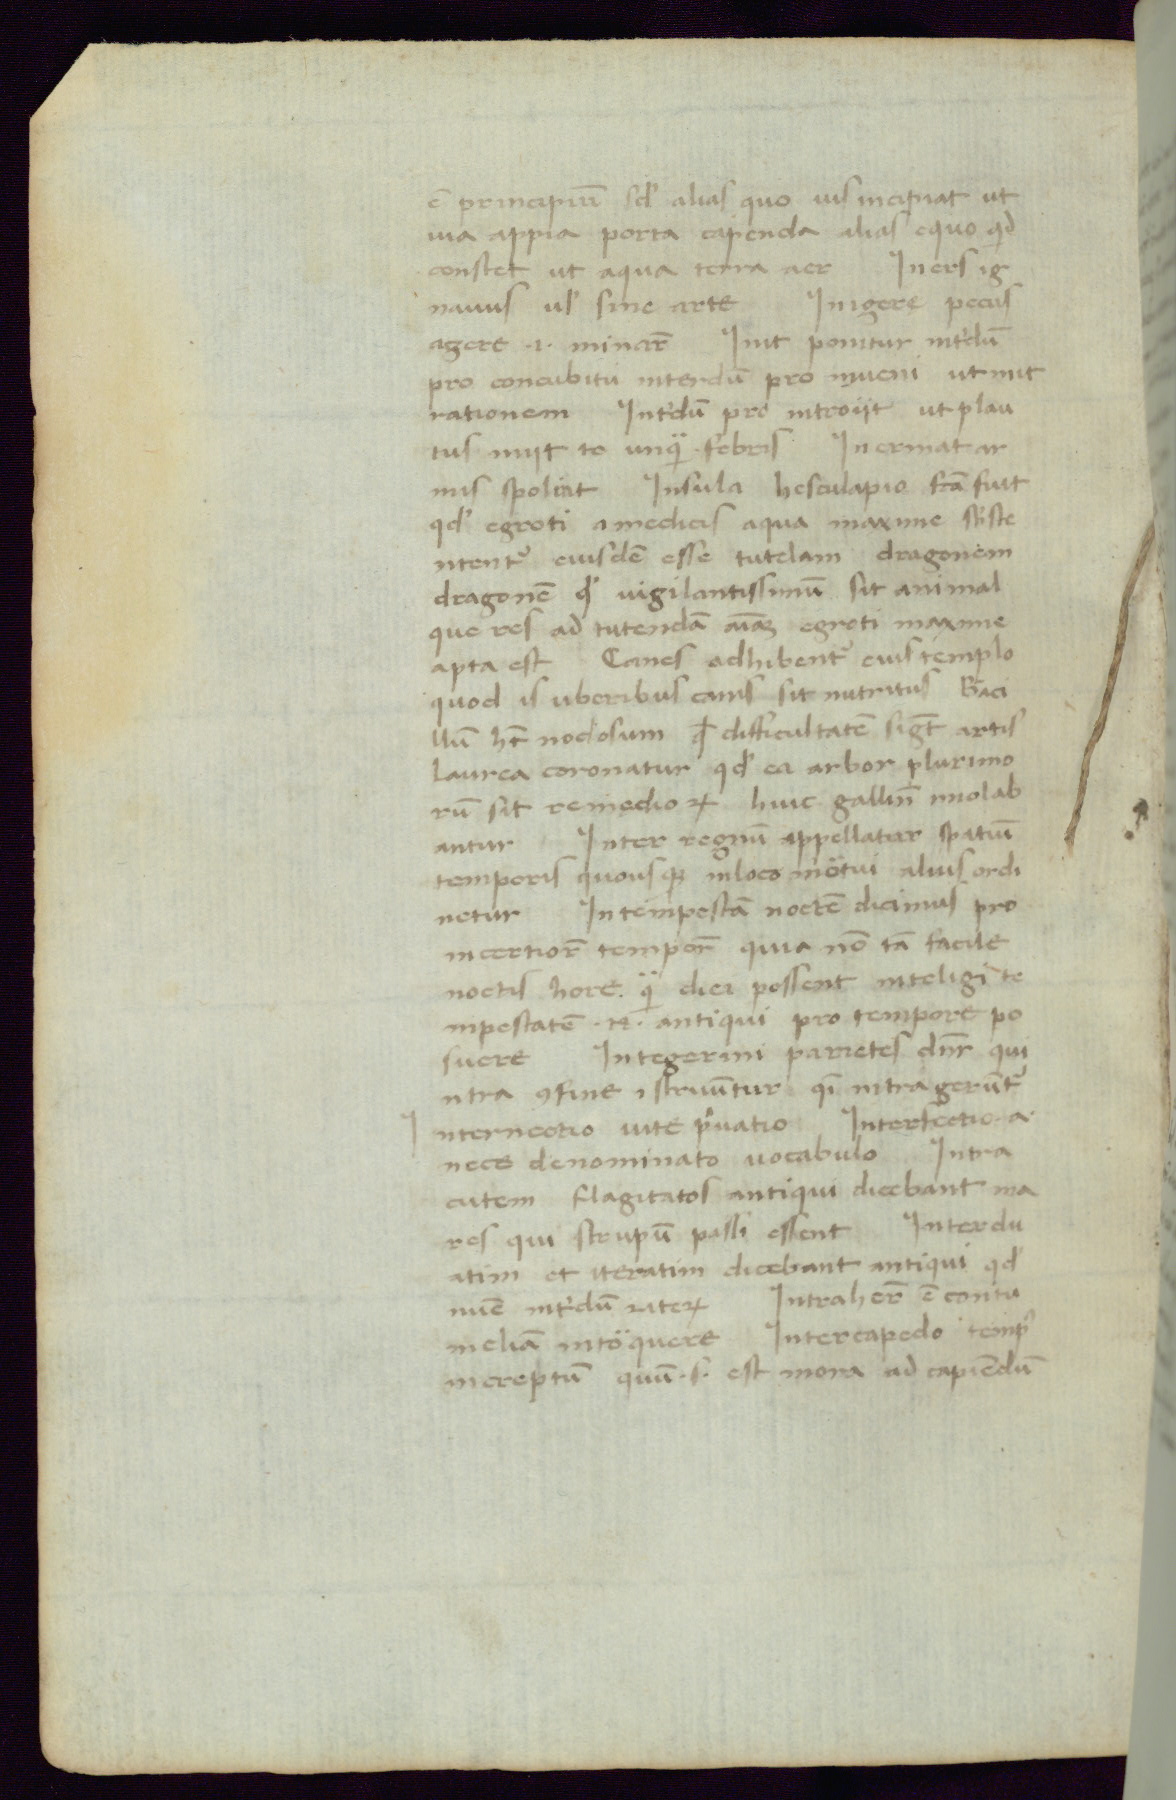 ē principiū sꝺ̉ alias quo uis incipiat ut
uia appia porta capienda alias equo qd̉
constet ut aqua terra aer Iners ig
nauus ul̉ sine arte Inigere pecus
agere .i. minar̄ Init ponitur int̉dū
pro concubitu interdū pro inueni ut init
rationem Int̉dū pro introijt ut plau
tus inijt te unq̃ febris Inermat ar
mis spoliat Insula hesculapio fc̄a fuit
qd̉ egroti a medicis aqua maxime su̅ste
ntent᷑ eiusdē esse tutelam dragonem
dragonē qd̉ uigilantissimū sit animal
que res ad tutendā egroti maxime
apta est Canes adhibent᷑ eius templo
quod is uberibus canis sit nutritus Baci
llū ht̄ nodosum ꝙ difficultatē sigt̄ artis
Laurea coronatur qd̉ ea arbor plurimo
rū sit remedioꝝ huic gallin̄ imolab
antur Inter regnū appellatur spatiū
temporis quousqꝫ in loco mõtui alius ordi
netur Intempestā noctē dicimus pro
incertior̄ tempor̄ quia nō tā facile
noctis hore q̃ diei possent inteligi te
mpestatē .n. antiqui pro tempore po
suere Integerini parietes dn̄r qui
ntra ꝯfine istruūtur qi̅ intra gerūt᷑
Internectio uite p̉uatio Interfectio a
nece denominato uocabulo Intra
cutem flagitatos antiqui dicebant ma
res qui strupū passi essent Interdu
atim et iteratim dicebant antiqui qd̉
nūc int̉dū iteꝝ Intraher̄ ē contu
meliā intõquere Intercapedo temp̉
intereptū quū .s. est mora ad capiēdū